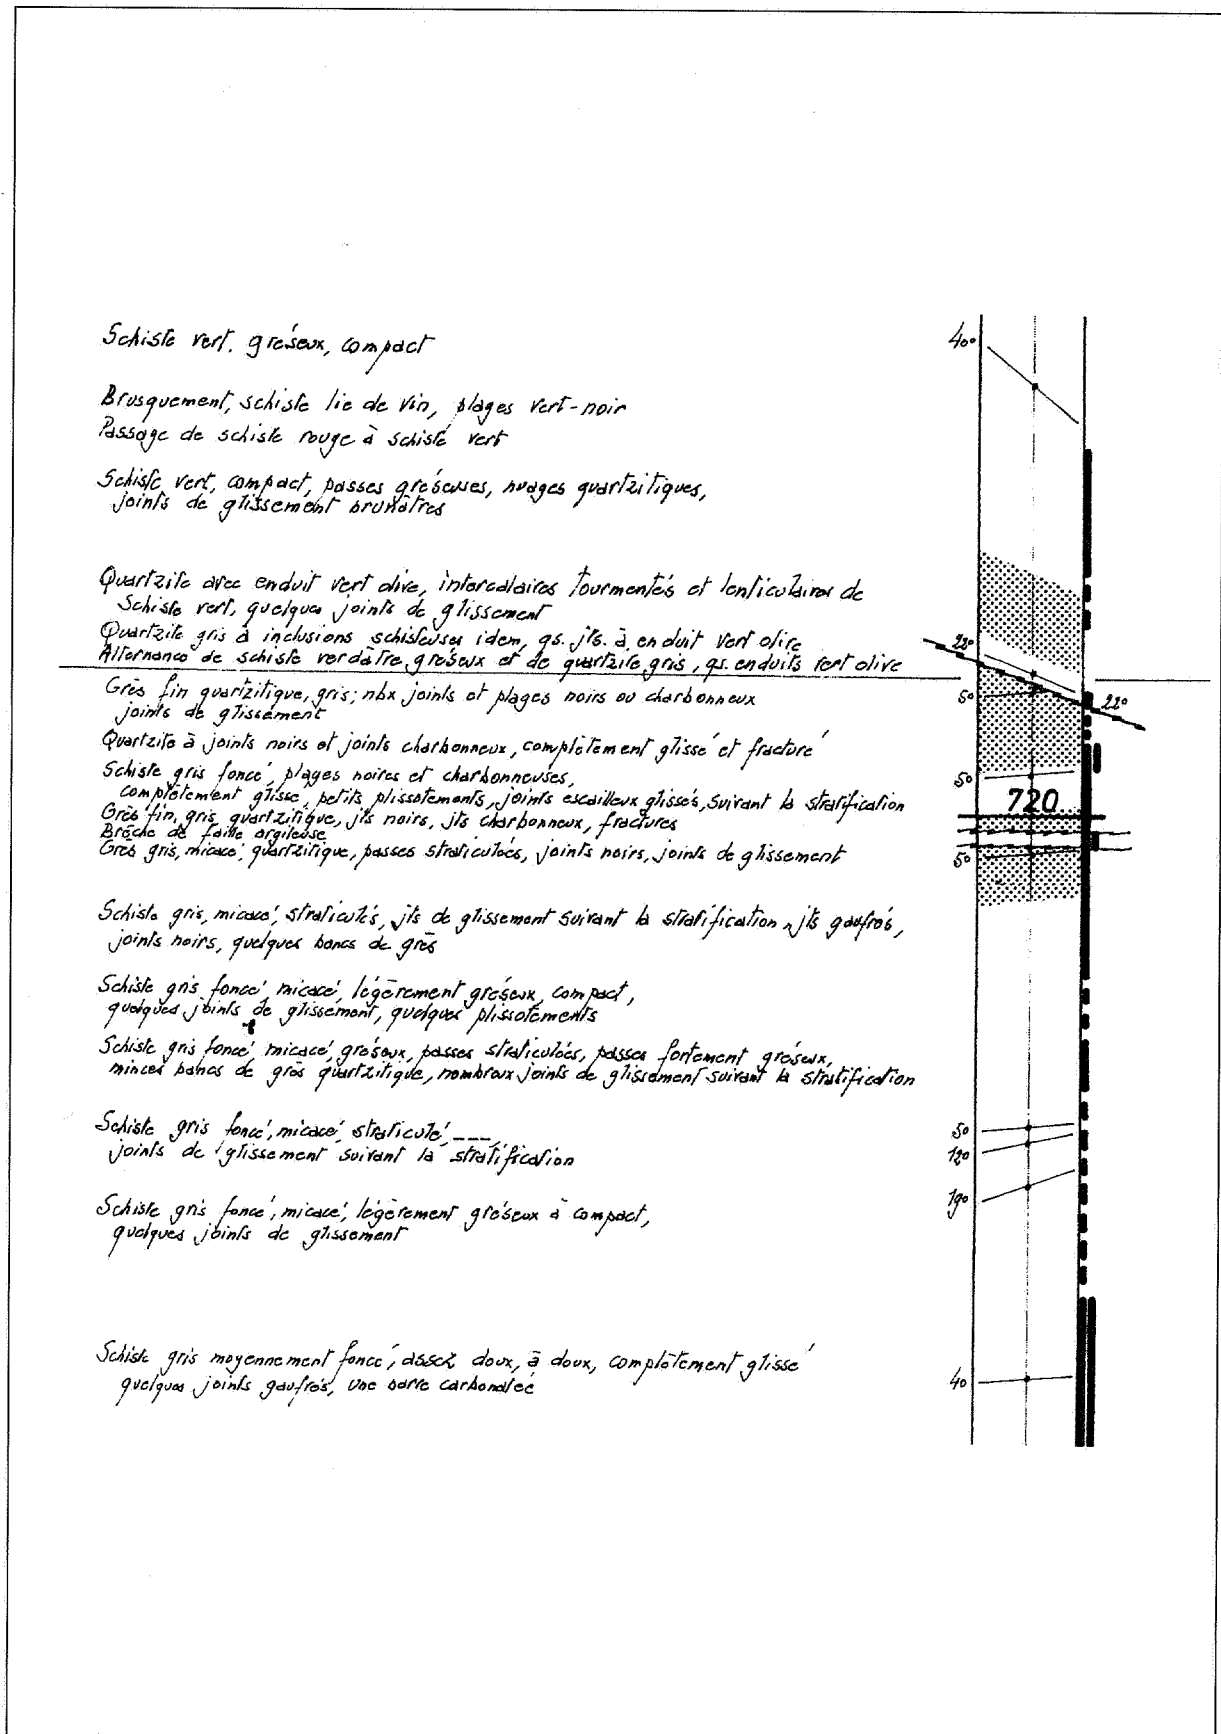 Schiste vert, gréseux, compact
40
Brusquement, schiste lie de vin, plages vert-noir
Passage de schiste rouge à schiste vert
Schiste vert, compact, passes gréseuses, nuages quartzitiques,
joints de glissement brunâtres
Quartzite avec enduit vert olive, intercalaires tourmentés et lenticulaires de
Schiste vert, quelques joints de glissement
Quartzite gris à inclusions schisteuses idem, qs. jts. à enduit vert olive
22°
Alternance de schiste verdâtre gréseux et de quartzite gris, qs. enduits vert olive
Grès fin quartzitique, gris; nbx joints et plages noirs ou charbonneux
5°
22°
joints de glissement
Quartzite à joints noirs et joints charbonneux, complètement glissé et fracturé
Schiste gris foncé, plages noires et charbonneuses,
5°
complètement glissé, petits plissotements, joints escailleux glissés, suivant la stratification
720
Grès fin, gris, quartzitique, jts noirs, jts charbonneux, fractures
Brèche de faille argileuse
Grès gris, micacé, quartzitique, passes straticulées, joints noirs, joints de glissement
5°
Schiste gris, micacé, straticulés, jts de glissement suivant la stratification, jts gaufrés,
joints noirs, quelques bancs de grès
Schiste gris foncé, micacé, légèrement gréseux, compact,
quelques joints de glissement, quelques plissotements
Schiste gris foncé, micacé, gréseux, passes straticulées, passes fortement gréseux,
minces bancs de grès quartzitique, nombreux joints de glissement suivant la stratification
Schiste gris foncé, micacé, straticulé, ---
5°
joints de glissement suivant la stratification
12°
Schiste gris foncé, micacé, légèrement gréseux à compact,
19°
quelques joints de glissement
Schiste gris moyennement foncé, assez doux, à doux, complètement glissé
quelques joints gaufrés, une barre carbonatée
4°